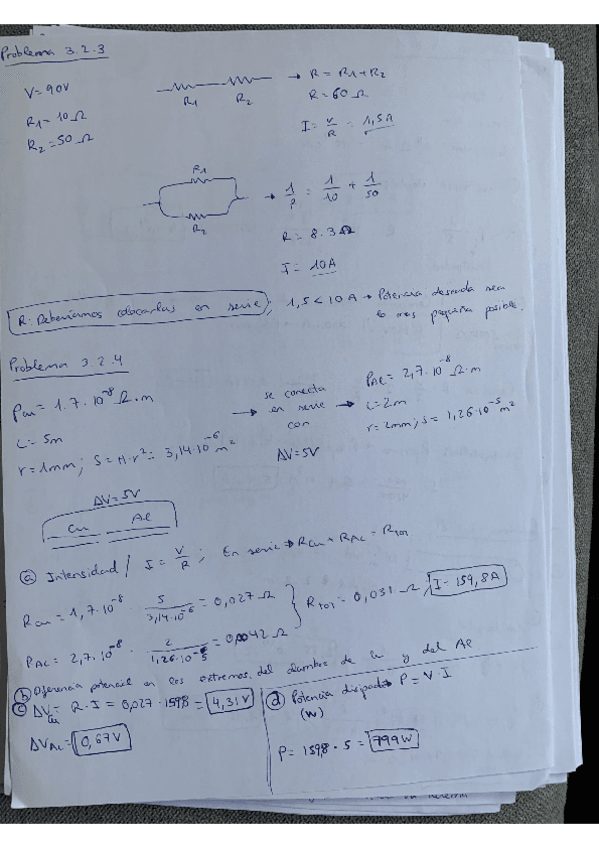 Problema 3.2.3
V=90V
R1=10Ω
R2=50Ω
R1 R2
→ R = R1+R2
R=60Ω
I= V/R = 1,5A
R1
R2
→ 1/R = 1/10 + 1/50
R= 8.3Ω
I= 10A
R: Deberíamos colocarlas en serie; 1,5<10A → Potencia deseada sea
lo mas pequeña posible.
Problema 3.2.4
ρcu= 1.7·10^-8 Ω·m
L= 5m
r=1mm; S=π·r²= 3,14·10^-6 m²
→ se conecta
en serie →
con
ΔV=5V
ρAl= 2,7·10^-8 Ω·m
L=2m
r=2mm; S= 1,26·10^-5 m²
ΔV=5V
Cu Al
a Intensidad / I= V/R ; En serie → Rcu + RAl = Rtot
Rcu = 1,7·10^-8 · 5/3,14·10^-6 = 0,027Ω
RAl = 2,7·10^-8 · 2/1,26·10^-5 = 0,0042Ω
Rtot= 0,031Ω / I= 159,8A
b Diferencia potencial en los extremos del alambre de Cu y del Al
c ΔVcu= R·I = 0,027·159,8 = 4,31V
ΔVAl= 0,67V
d Potencia disipada → P=V·I
(W)
P= 159,8·5= 799W